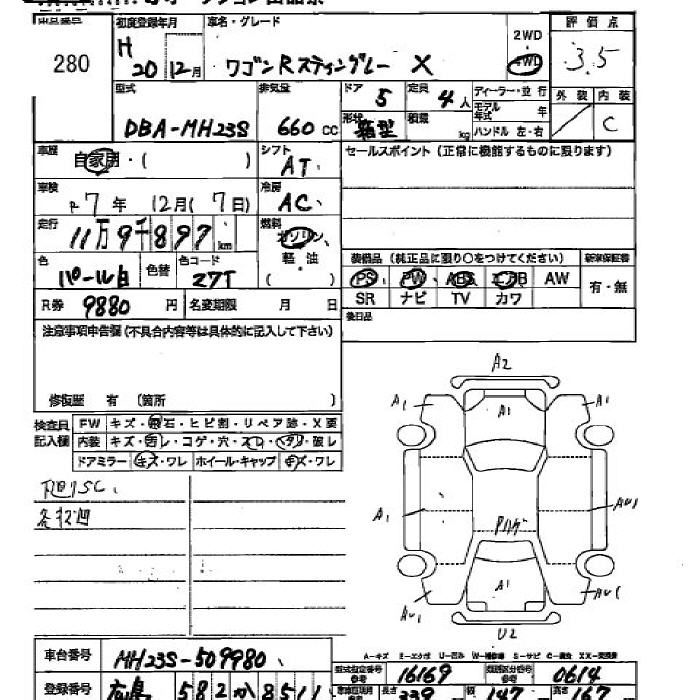 280
初度登録年月 車名・グレード 評価点
H 20 12月 ワゴンRスティングレー X 2WD 4WD 3.5
型式 排気量 ドア 5 定員 4人 ディーラー・並行 外装 内装
DBA-MH23S 660cc 形状 箱型 積載 kg モデル年式 年 ハンドル 左・右 C
車歴 自家用・( ) シフト AT セールスポイント(正常に機能するものに限ります)
車検 R7年 12月(7日) 冷房 AC
走行 11万9千897km 燃料 ガソリン、軽油 ( )
色 パール白 色替 色コード Z7T
装備品(純正品に限り○をつけてください) 新車保証書
PS PW ABS エアB AW 有・無
SR ナビ TV カワ
R券 9880円 名変期限 月 日 後日品
注意事項申告欄(不具合内容等は具体的に記入して下さい)
修復歴 有 (箇所 )
検査員記入欄 FW キズ・飛石・ヒビ割・リペア跡・X要
内装 キズ・切レ・コゲ・穴・スレ・ヘタリ・破レ
ドアミラー キズ・ワレ ホイール・キャップ キズ・ワレ
下廻りSC、
A2
A1 A1 A1
A1 AU1
A1
AU1 AU1
U2
A-キズ E-エクボ U-凹み W-補修跡 S-サビ C-腐食 XX-交換済
車台番号 MH23S-509980
型式指定番号 16169 類別区分番号 0614
登録番号 広島 582 か 8511
長さ 339 幅 147 高さ 167